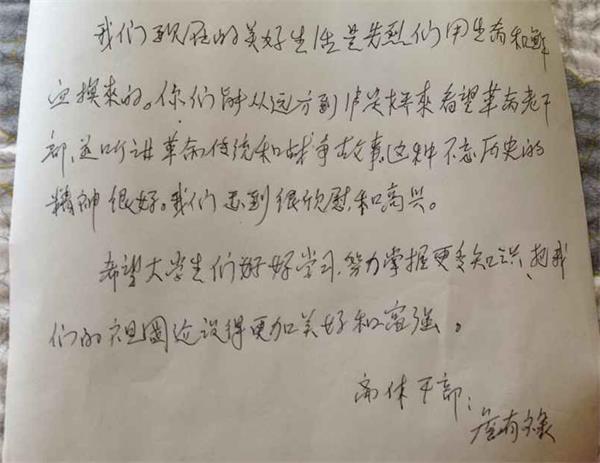 我们现在的美好生活是先烈们用生命和鲜
血换來的。你们能从远方到來看望革命老干
部,并听讲革命传统和战争故事,这种不忘历史的
精神很好。我们感到很欣慰和高兴。
希望大学生们好好学习,努力掌握更多知识,把我
们的祖國建设得更加美好和富强。
离休干部: